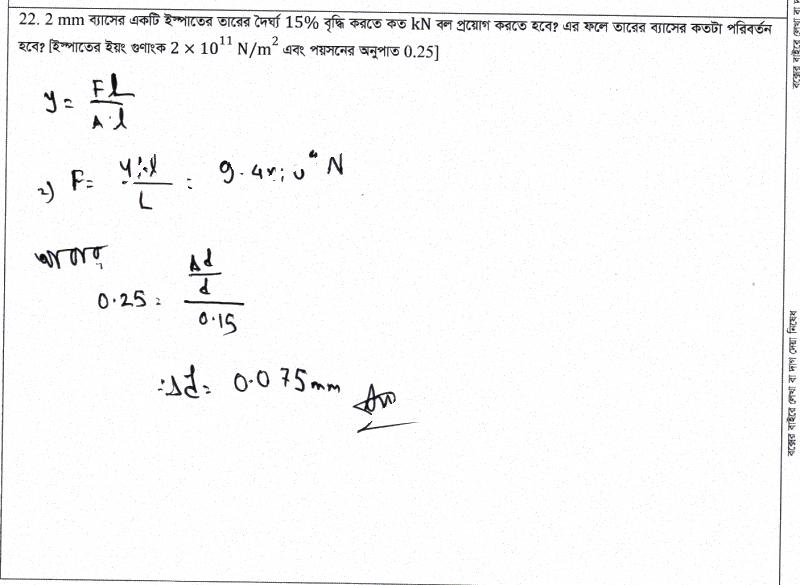 22. 2 mm ব্যাসের একটি ইস্পাতের তারের দৈর্ঘ্য 15% বৃদ্ধি করতে কত kN বল প্রয়োগ করতে হবে? এর ফলে তারের ব্যাসের কতটা পরিবর্তন
হবে? [ইস্পাতের ইয়ং গুণাংক 2 × 10¹¹ N/m² এবং পয়সনের অনুপাত 0.25]
y = FL / A·l
⇒) F = YAl / L = 9.4×10⁴ N
আবার,
0.25 = (Δd / d) / 0.15
∴ Δd = 0.075mm Ans
বক্সের বাইরে লেখা বা দাগ দেয়া নিষেধ